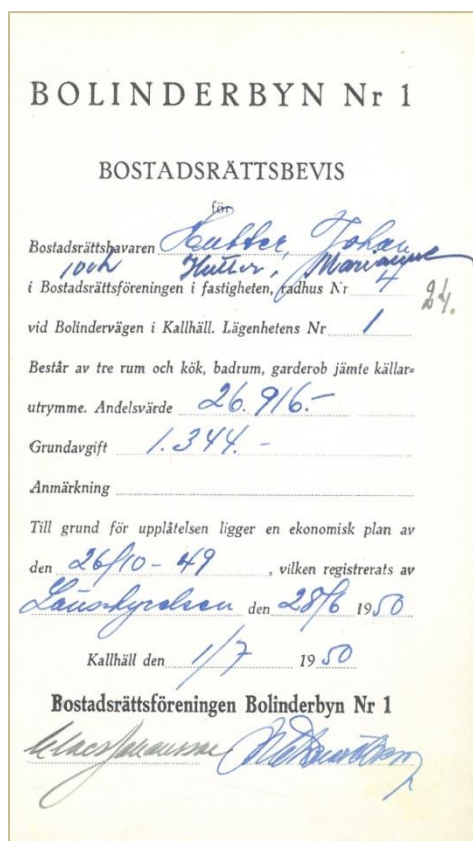 BOLINDERBYN Nr 1
BOSTADSRÄTTSBEVIS
för
Bostadsrättshavaren Hutter, Johan
och Hutter, Marianne
i Bostadsrättsföreningen i fastigheten, radhus Nr 4
24.
vid Bolindervägen i Kallhäll. Lägenhetens Nr 1
Består av tre rum och kök, badrum, garderob jämte källar=
utrymme. Andelsvärde 26.916.-
Grundavgift 1.344.-
Anmärkning
Till grund för upplåtelsen ligger en ekonomisk plan av
den 26/10-49, vilken registrerats av
Länsstyrelsen den 28/6 1950
Kallhäll den 1/7 1950
Bostadsrättsföreningen Bolinderbyn Nr 1